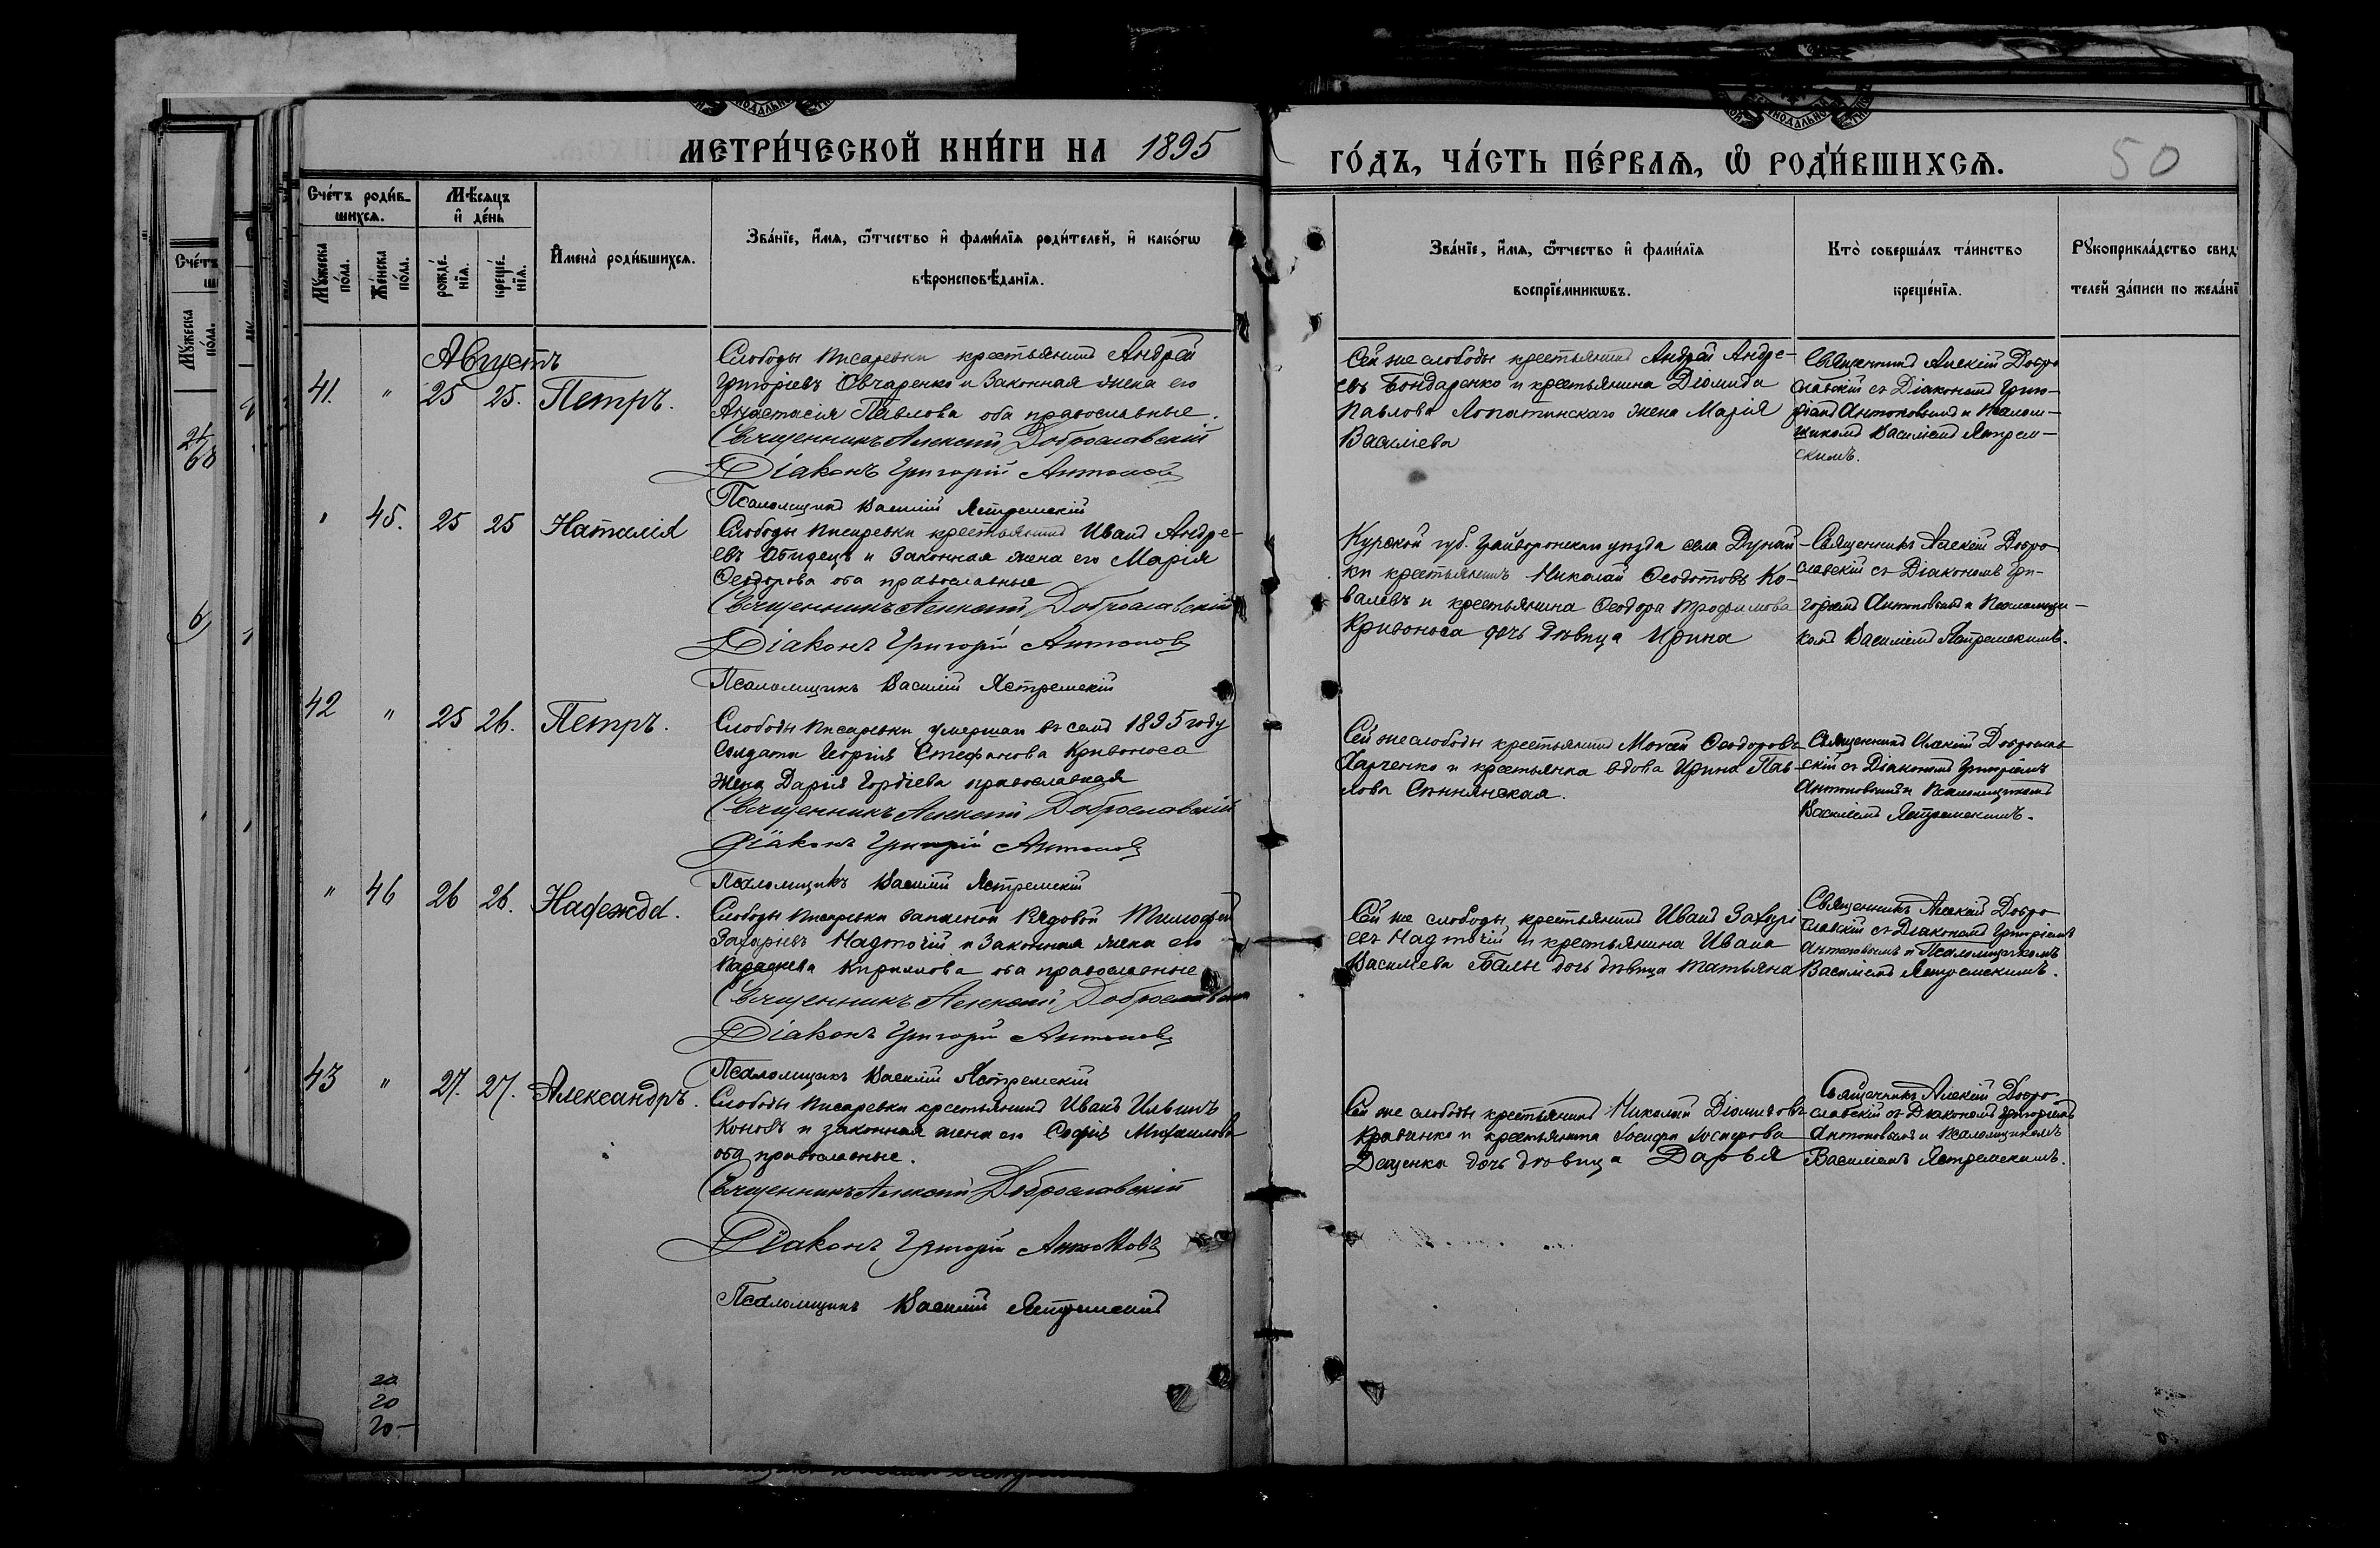 МЕТРИ́ЧЕСКОЙ КНИ́ГИ НА 1895
ГО́ДЪ, ЧА́СТЬ ПЕ́РВАѦ, Ѡ҆ РОДИ́ВШИХСѦ.
50
Сче́тъ роди́в-
шихсѧ.
Мꙋ́жеска по́ла.
Же́нска по́ла.
Мѣ́сѧцъ
и҆ де́нь
рожде́-
нїѧ.
креще́-
нїѧ.
И҆мена̀ роди́вшихсѧ.
Зва́нїе, и҆́мѧ, ѻ҆́тчество и҆ фами́лїѧ роди́телей, и҆ како́гѡ
вѣроисповѣ́данїѧ.
Зва́нїе, и҆́мѧ, ѻ҆́тчество и҆ фами́лїѧ
воспрїе́мникѡвъ.
Кто̀ соверша́лъ та́инство
креще́нїѧ.
Рꙋкоприкла́дство свид
телей за́писи по жела́нї
Августъ
41. " 25 25. Петръ.
Слободы Писаревки крестьянинъ Андрей
Григоріевъ Овчаренко и законная жена его
Анастасія Павлова оба православные.
Священникъ Алексій Доброславскій
Діаконъ Григорій Антоновъ
Псаломщикъ Василій Ястремскій
Сей же слободы крестьянинъ Андрей Андре-
евъ Бондаренко и крестьянина Діомида
Павлова Лопатинскаго жена Марія
Василіева
Священникъ Алексій Добро
славскій съ Діакономъ Григо-
ріемъ Антоновымъ и Псалом-
щикомъ Василіемъ Ястрем-
скимъ.
" 45. 25 25 Наталія
Слободы Писаревки крестьянинъ Иванъ Андре-
евъ и законная жена его Марія
Ѳеодорова оба православные
Священникъ Алексій Доброславскій
Діаконъ Григорій Антоновъ
Псаломщикъ Василій Ястремскій
Курской губ. Грайворонскаго уѣзда села Дунай-
ки крестьянинъ Николай Ѳеодотовъ Ко-
валевъ и крестьянина Ѳеодора Трофимова
Кривоноса дочь дѣвица Ирина
Священникъ Алексій Добро
славскій съ Діакономъ Гри-
горіемъ Антоновымъ и Псаломщи-
комъ Василіемъ Ястремскимъ.
42 " 25 26. Петръ.
Слободы Писаревки умершаго въ семъ 1895 году
Солдата Георгія Стефанова Кривоноса
жена Дарія Гордіева православная
Священникъ Алексій Доброславскій
Діаконъ Григорій Антоновъ
Псаломщикъ Василій Ястремскій
Сей же слободы крестьянинъ Моисей Ѳеодоровъ
Харченко и крестьянка вдова Ирина Пав-
лова
Священникъ Алексій Доброслав
скій съ Діакономъ Григоріемъ
Антоновымъ и Псаломщикомъ
Василіемъ Ястремскимъ.
" 46 26 26. Надежда.
Слободы Писаревки запасной Рядовой Тимофей
Захаріевъ Надточій и законная жена его
Параскева Кириллова оба православные
Священникъ Алексій Доброславскій
Діаконъ Григорій Антоновъ
Псаломщикъ Василій Ястремскій
Сей же слободы крестьянинъ Иванъ Захарі
евъ Надточій и крестьянина Ивана
Василіева дочь дѣвица Татьяна
Священникъ Алексій Добро
славскій съ Діакономъ Григоріемъ
Антоновымъ и Псаломщикомъ
Василіемъ Ястремскимъ.
43 " 27. 27. Александръ.
Слободы Писаревки крестьянинъ Иванъ Ильинъ
и законная жена его Софія Михаилова
оба православные.
Священникъ Алексій Доброславскій
Діаконъ Григорій Антоновъ
Псаломщикъ Василій Ястремскій
Сей же слободы крестьянинъ Николай Діомидовъ
и крестьянина Іосифа
дочь дѣвица Дарья
Священникъ Алексій Добро-
славскій съ Діакономъ Григоріемъ
Антоновымъ и Псаломщикомъ
Василіемъ Ястремскимъ.
20
20
20-